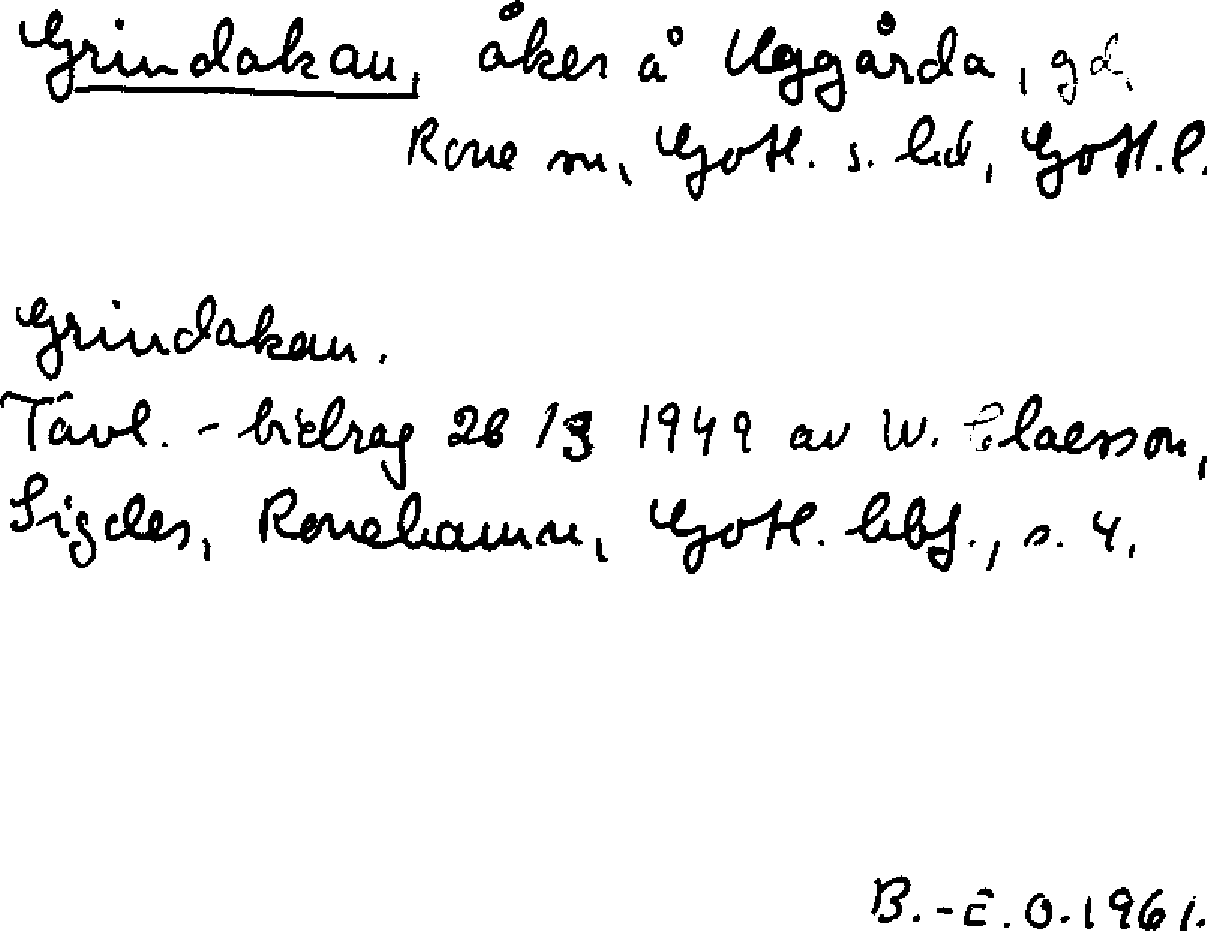 Grindakau, åker å Uggårda, gd,
Rone sn, Gotl. s. hd, Gotl.l.
Grindakau.
Tävl.-bidrag 26/3 1949 av W. Claesson,
Sigdes, Ronehamn, Gotl. hbf., s. 4.
B.-E.O.1961.